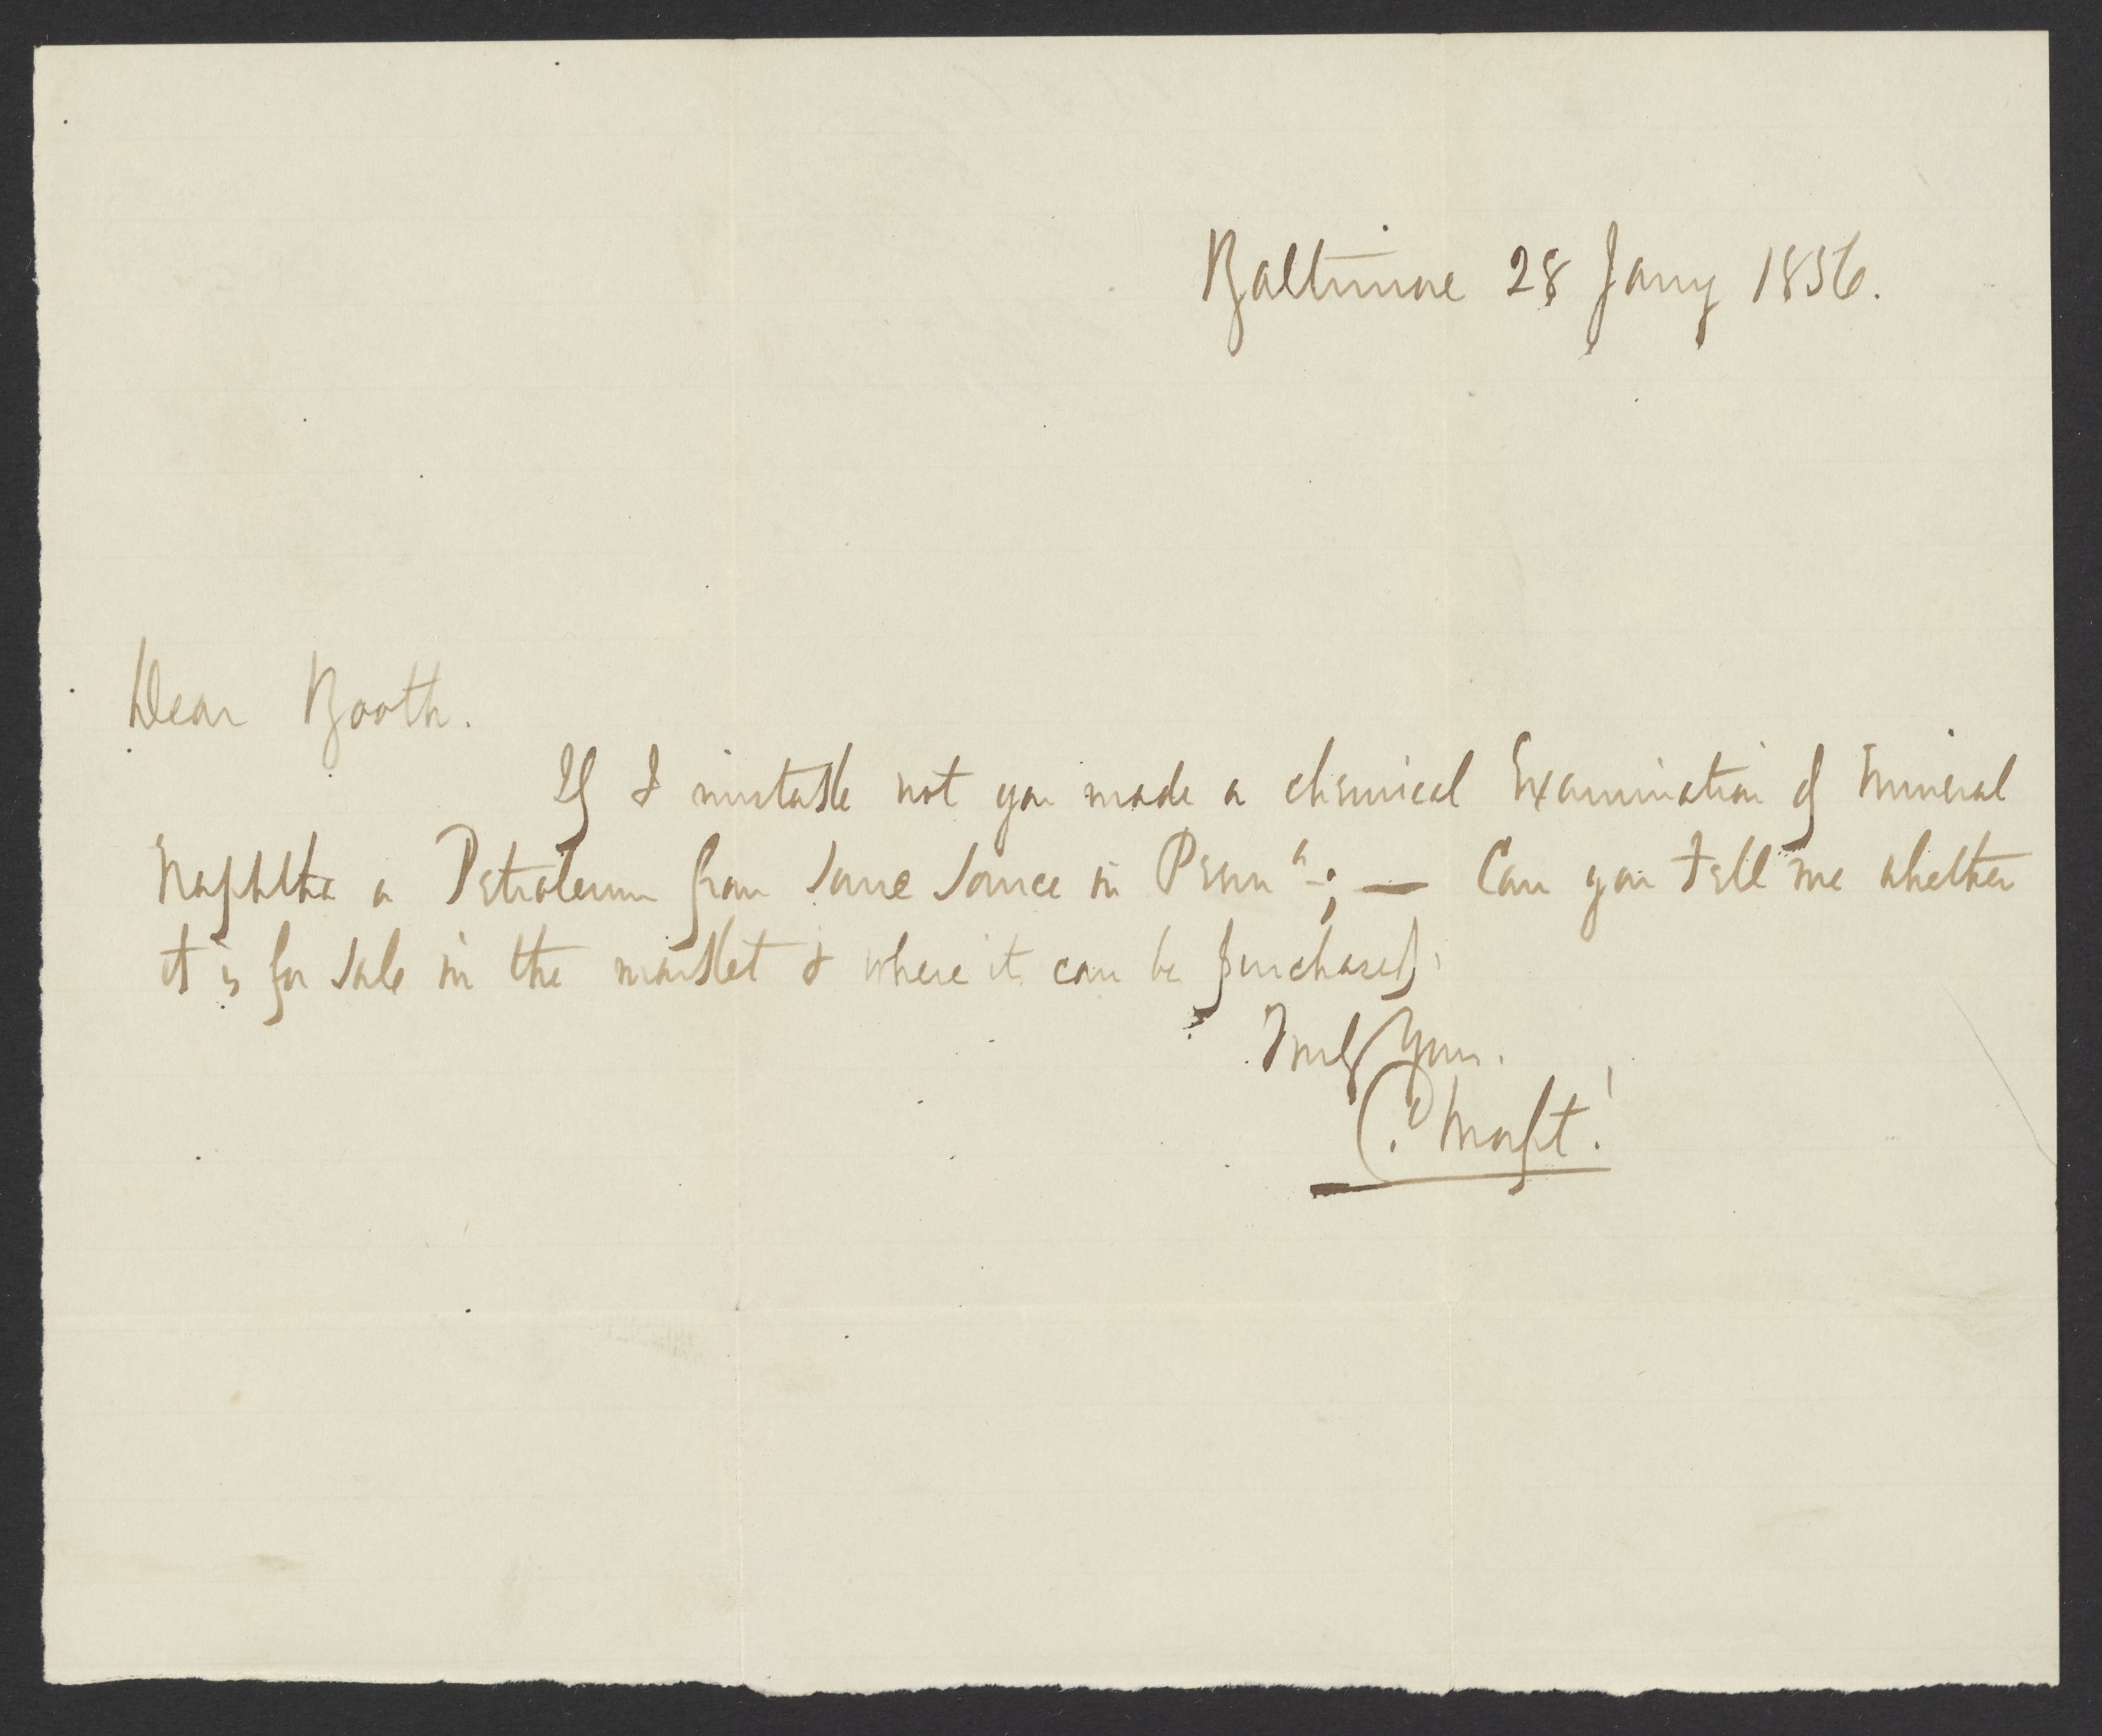 Baltimore 28 Jany 1856.
Dear Booth.
If I mistake not you made a chemical Examination of mineral
Naphtha or Petroleum from some source in Penna.; — Can you tell me whether
it is for sale in the market & where it can be purchased.
Truly Yours.
C. Morfit.